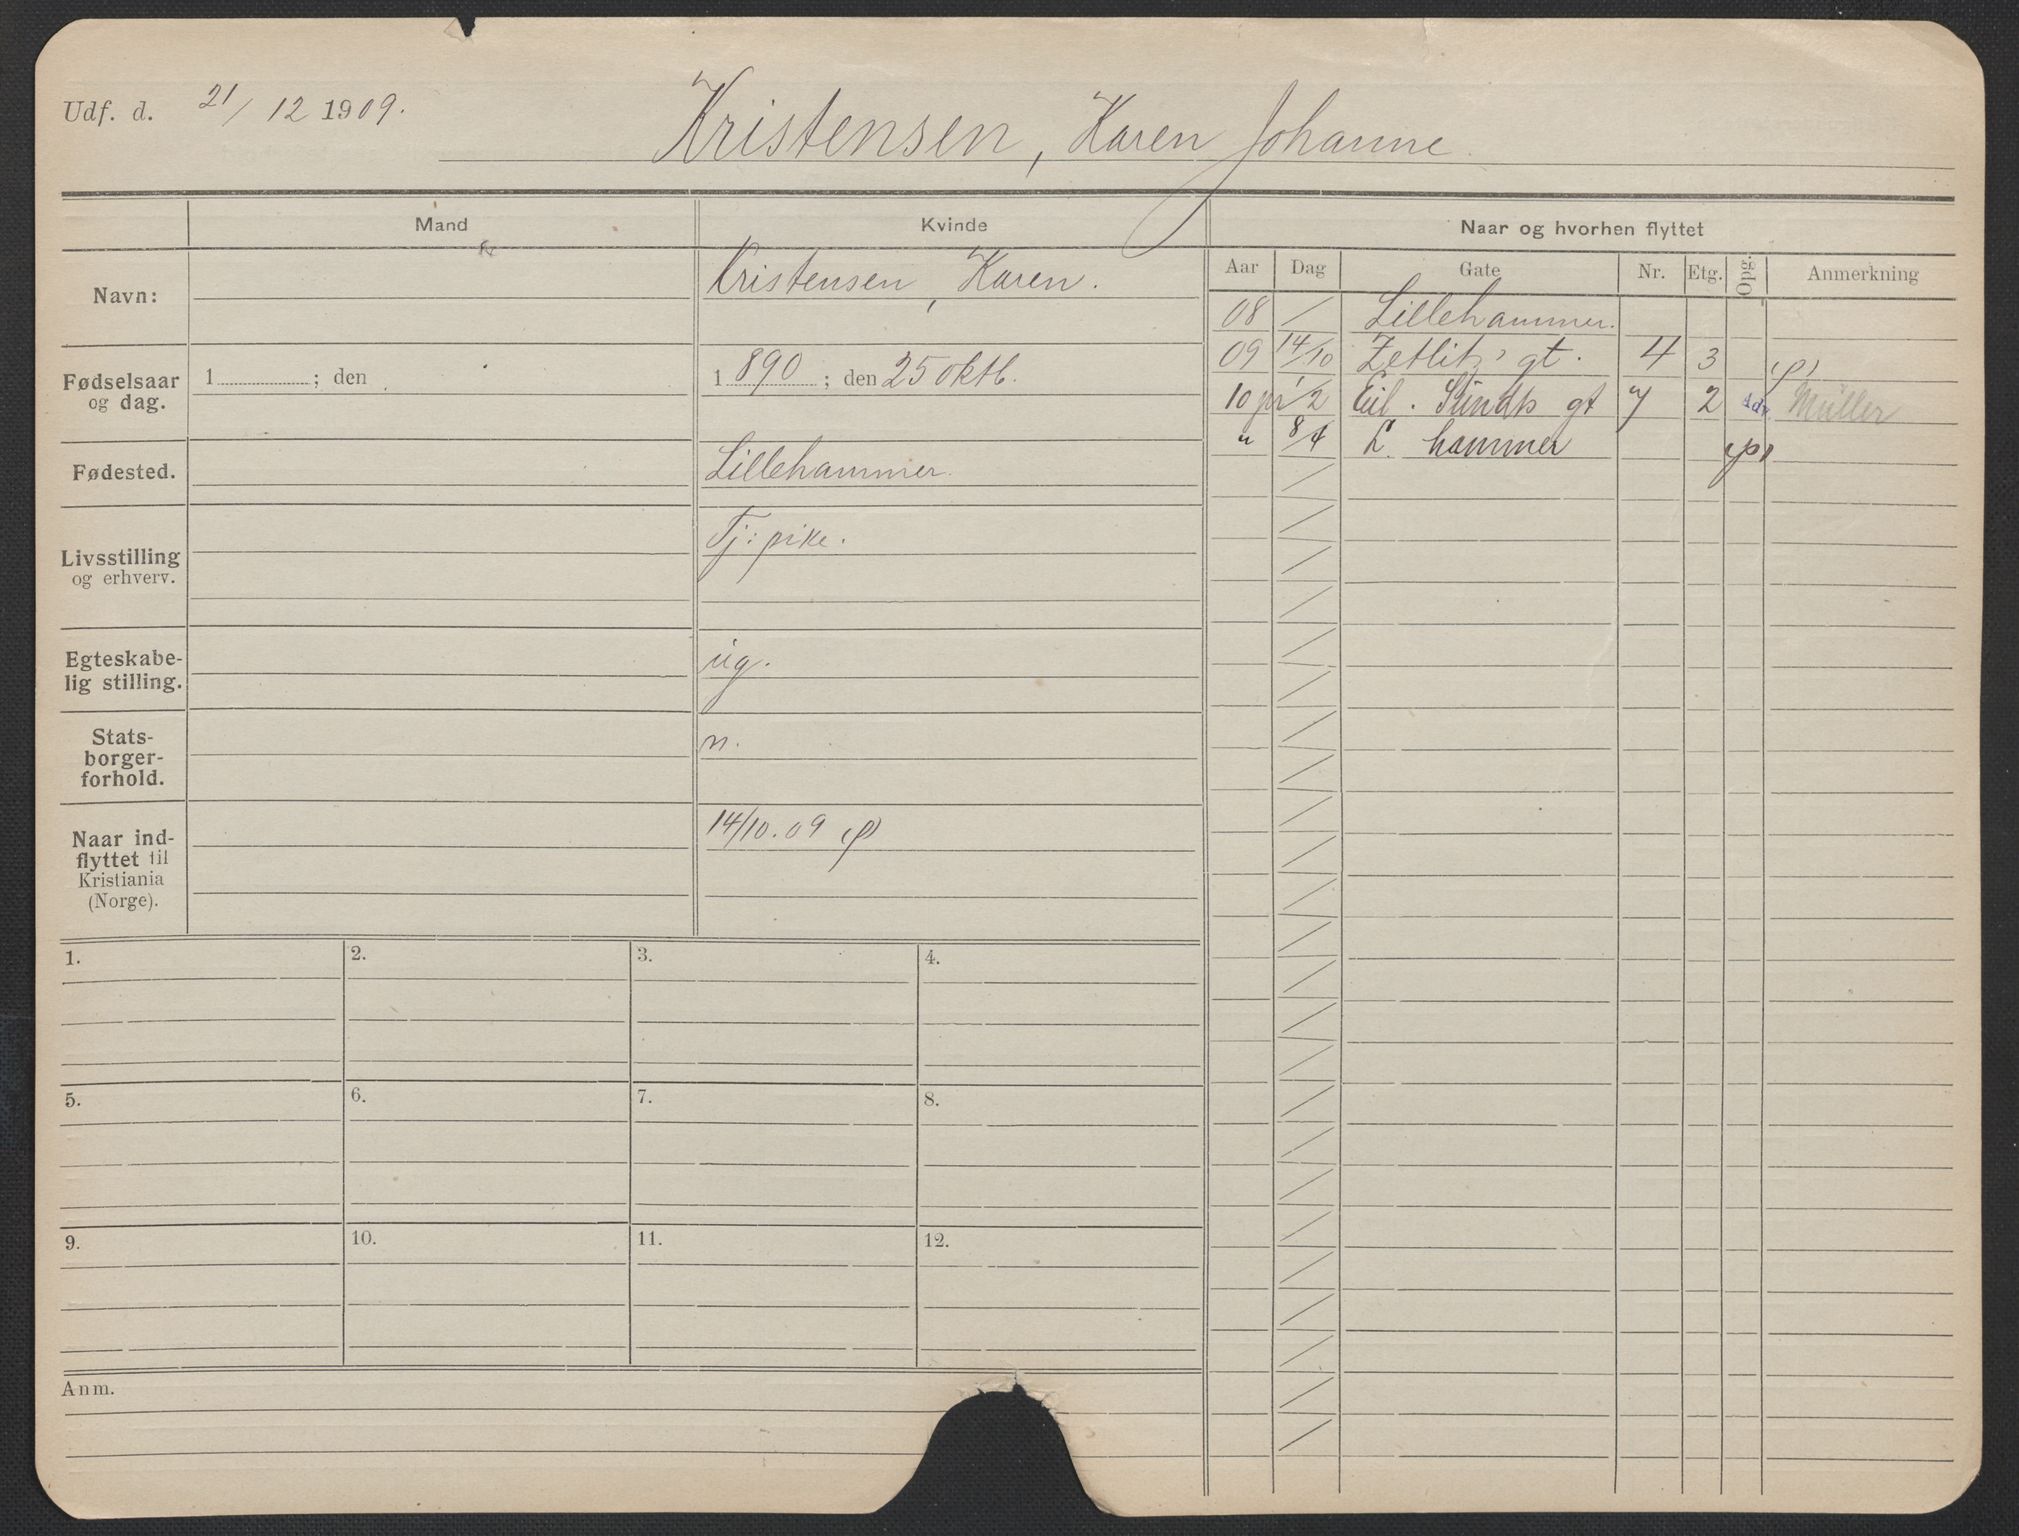 Udf. d. 21/12 1909.
Kristensen, Karen Johanne
Mand
Kvinde
Naar og hvorhen flyttet
Navn:
Kristensen, Karen.
Aar Dag Gate Nr. Etg. Opg. Anmerkning
08 / Lillehammer.
09 14/10 Zetlitz' gt. 4 3 (p)
10 pr 1/2 Eil. Sundts gt 7 2 Adv. Müller
" 8/4 L. hammer (p)
Fødselsaar
og dag.
1 ; den
1890 ; den 25 oktb.
Fødested.
Lillehammer.
Livsstilling
og erhverv.
Tj: pike.
Egteskabe-
lig stilling.
ug.
Stats-
borger-
forhold.
n.
Naar ind-
flyttet til
Kristiania
(Norge).
14/10.09 (p)
1. 2. 3. 4.
5. 6. 7. 8.
9. 10. 11. 12.
Anm.